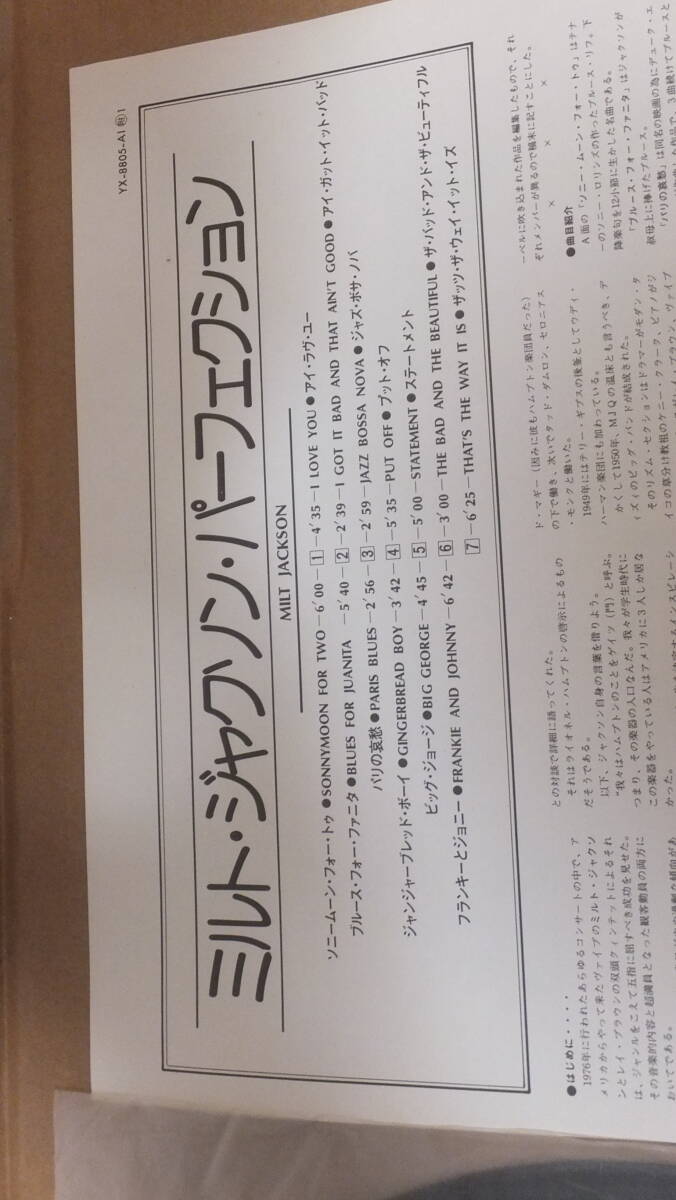 YX-8805-AI
ミルト・ジャクソン・パーフェクション
MILT JACKSON
ソニームーン・フォー・トゥ●SONNYMOON FOR TWO—6′00—1—4′35—I LOVE YOU●アイ・ラヴ・ユー
ブルース・フォー・ファニタ●BLUES FOR JUANITA—5′40—2—2′39—I GOT IT BAD AND THAT AIN'T GOOD●アイ・ガット・イット・バッド
パリの哀愁●PARIS BLUES—2′56—3—2′59—JAZZ BOSSA NOVA●ジャズ・ボサ・ノバ
ジャンジャーブレッド・ボーイ●GINGERBREAD BOY—3′42—4—5′35—PUT OFF●プット・オフ
ビッグ・ジョージ●BIG GEORGE—4′45—5—5′00—STATEMENT●ステートメント
フランキーとジョニー●FRANKIE AND JOHNNY—6′42—6—3′00—THE BAD AND THE BEAUTIFUL●ザ・バッド・アンド・ザ・ビューティフル
7—6′25—THAT'S THE WAY IT IS●ザッツ・ザ・ウェイ・イット・イズ
●はじめに・・・・
1976年に行われたあらゆるコンサートの中で、ア
メリカからやって来たヴァイブのミルト・ジャクソ
ンとレイ・ブラウンの双頭クィンテットによるそれ
は、ジャンルをこえて五指に屈すべき成功を見せた。
その音楽的内容と超満員となった観客動員の両方に
おいてである。
との対談で詳細に語ってくれた。
それはライオネル・ハンプトンの啓示によるもの
だそうである。
以下、ジャクソン自身の言葉を借りよう。
“我々はハンプトンのことをゲイツ（門）と呼ぶ。
つまり、その楽器の入口なんだ。我々が学生時代に
この楽器をやっている人はアメリカに3人しか居な
かった。
ド・マギー（因みに彼もハンプトン楽団員だった）
の下で働き、次いでタッド・ダムロン、セロニアス
・モンクと働いた。
1949年にはテリー・ギブスの後釜としてウディ・
ハーマン楽団にも加わっている。
かくして1950年、MJQの温床とも言うべき、デ
ィズィのビッグ・バンドが結成された。
そのリズム・セクションはドラマーがモダン・タ
イコの草分け教祖のケニー・クラーク、ピアノがジ
ーベルに吹き込まれた作品を編集したもので、それ
ぞれメンバーが異るので稿末に記すことにした。
× × ×
●曲目紹介
A面の「ソニー・ムーン・フォー・トゥ」はテナ
ーのソニー・ロリンズの作ったブルース・リフ。下
降楽句を12小節に生かした名曲である。
「ブルース・フォー・ファニタ」はジャクソンが
叔母上に捧げたブルース。
「パリの哀愁」は同名の映画の為にデューク・エ